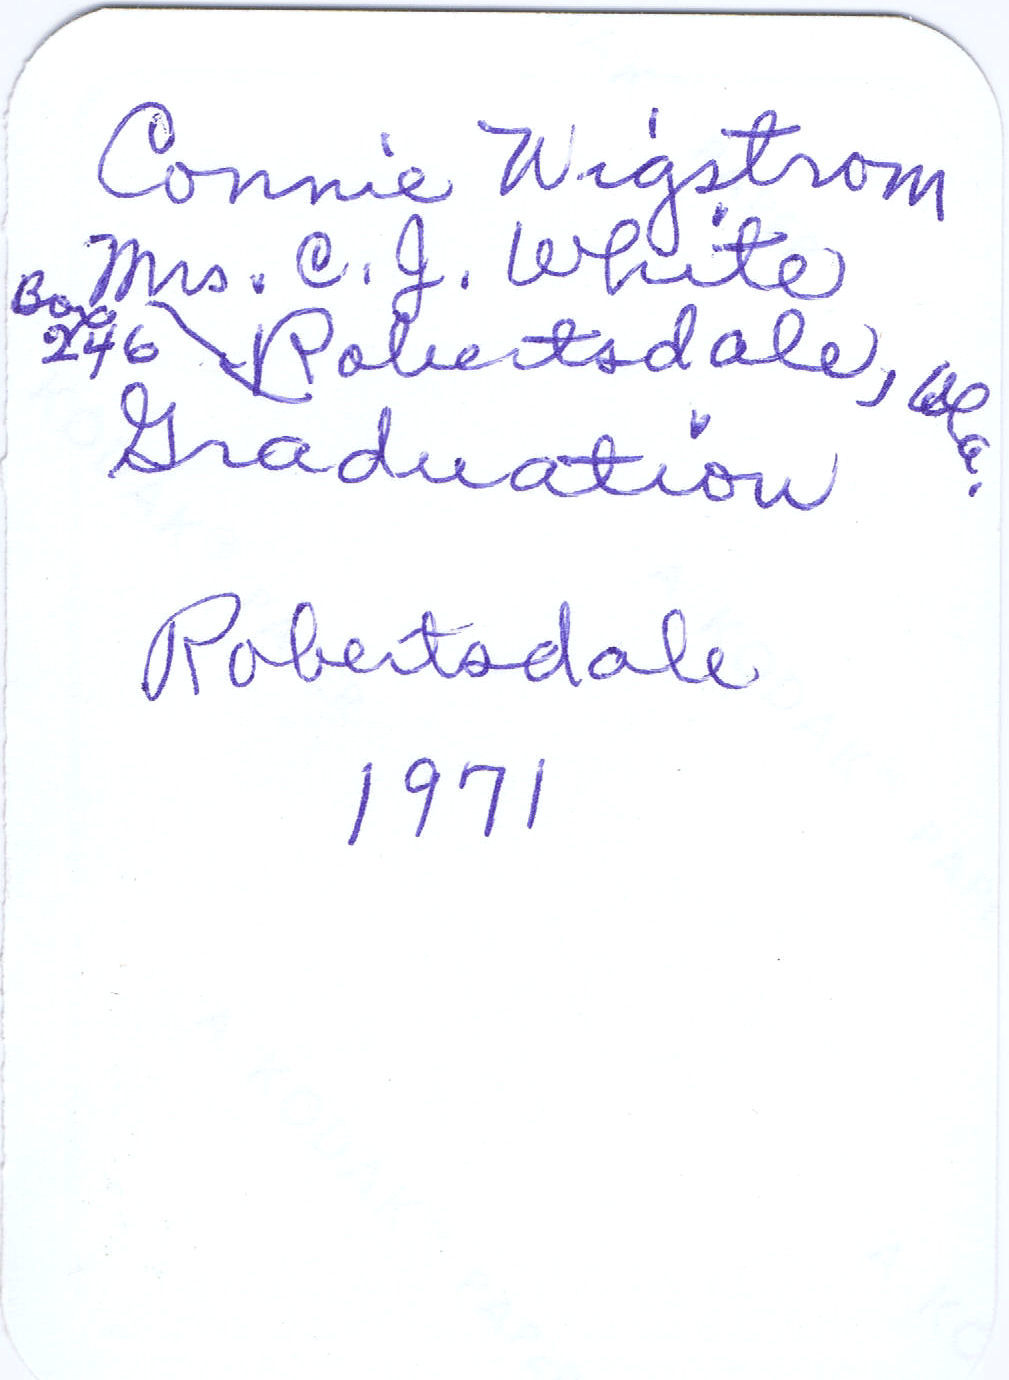 Connie Wigstrom
Mrs. C. J. White
Box
246
Robertsdale, Ala.
Graduation
Robertsdale
1971